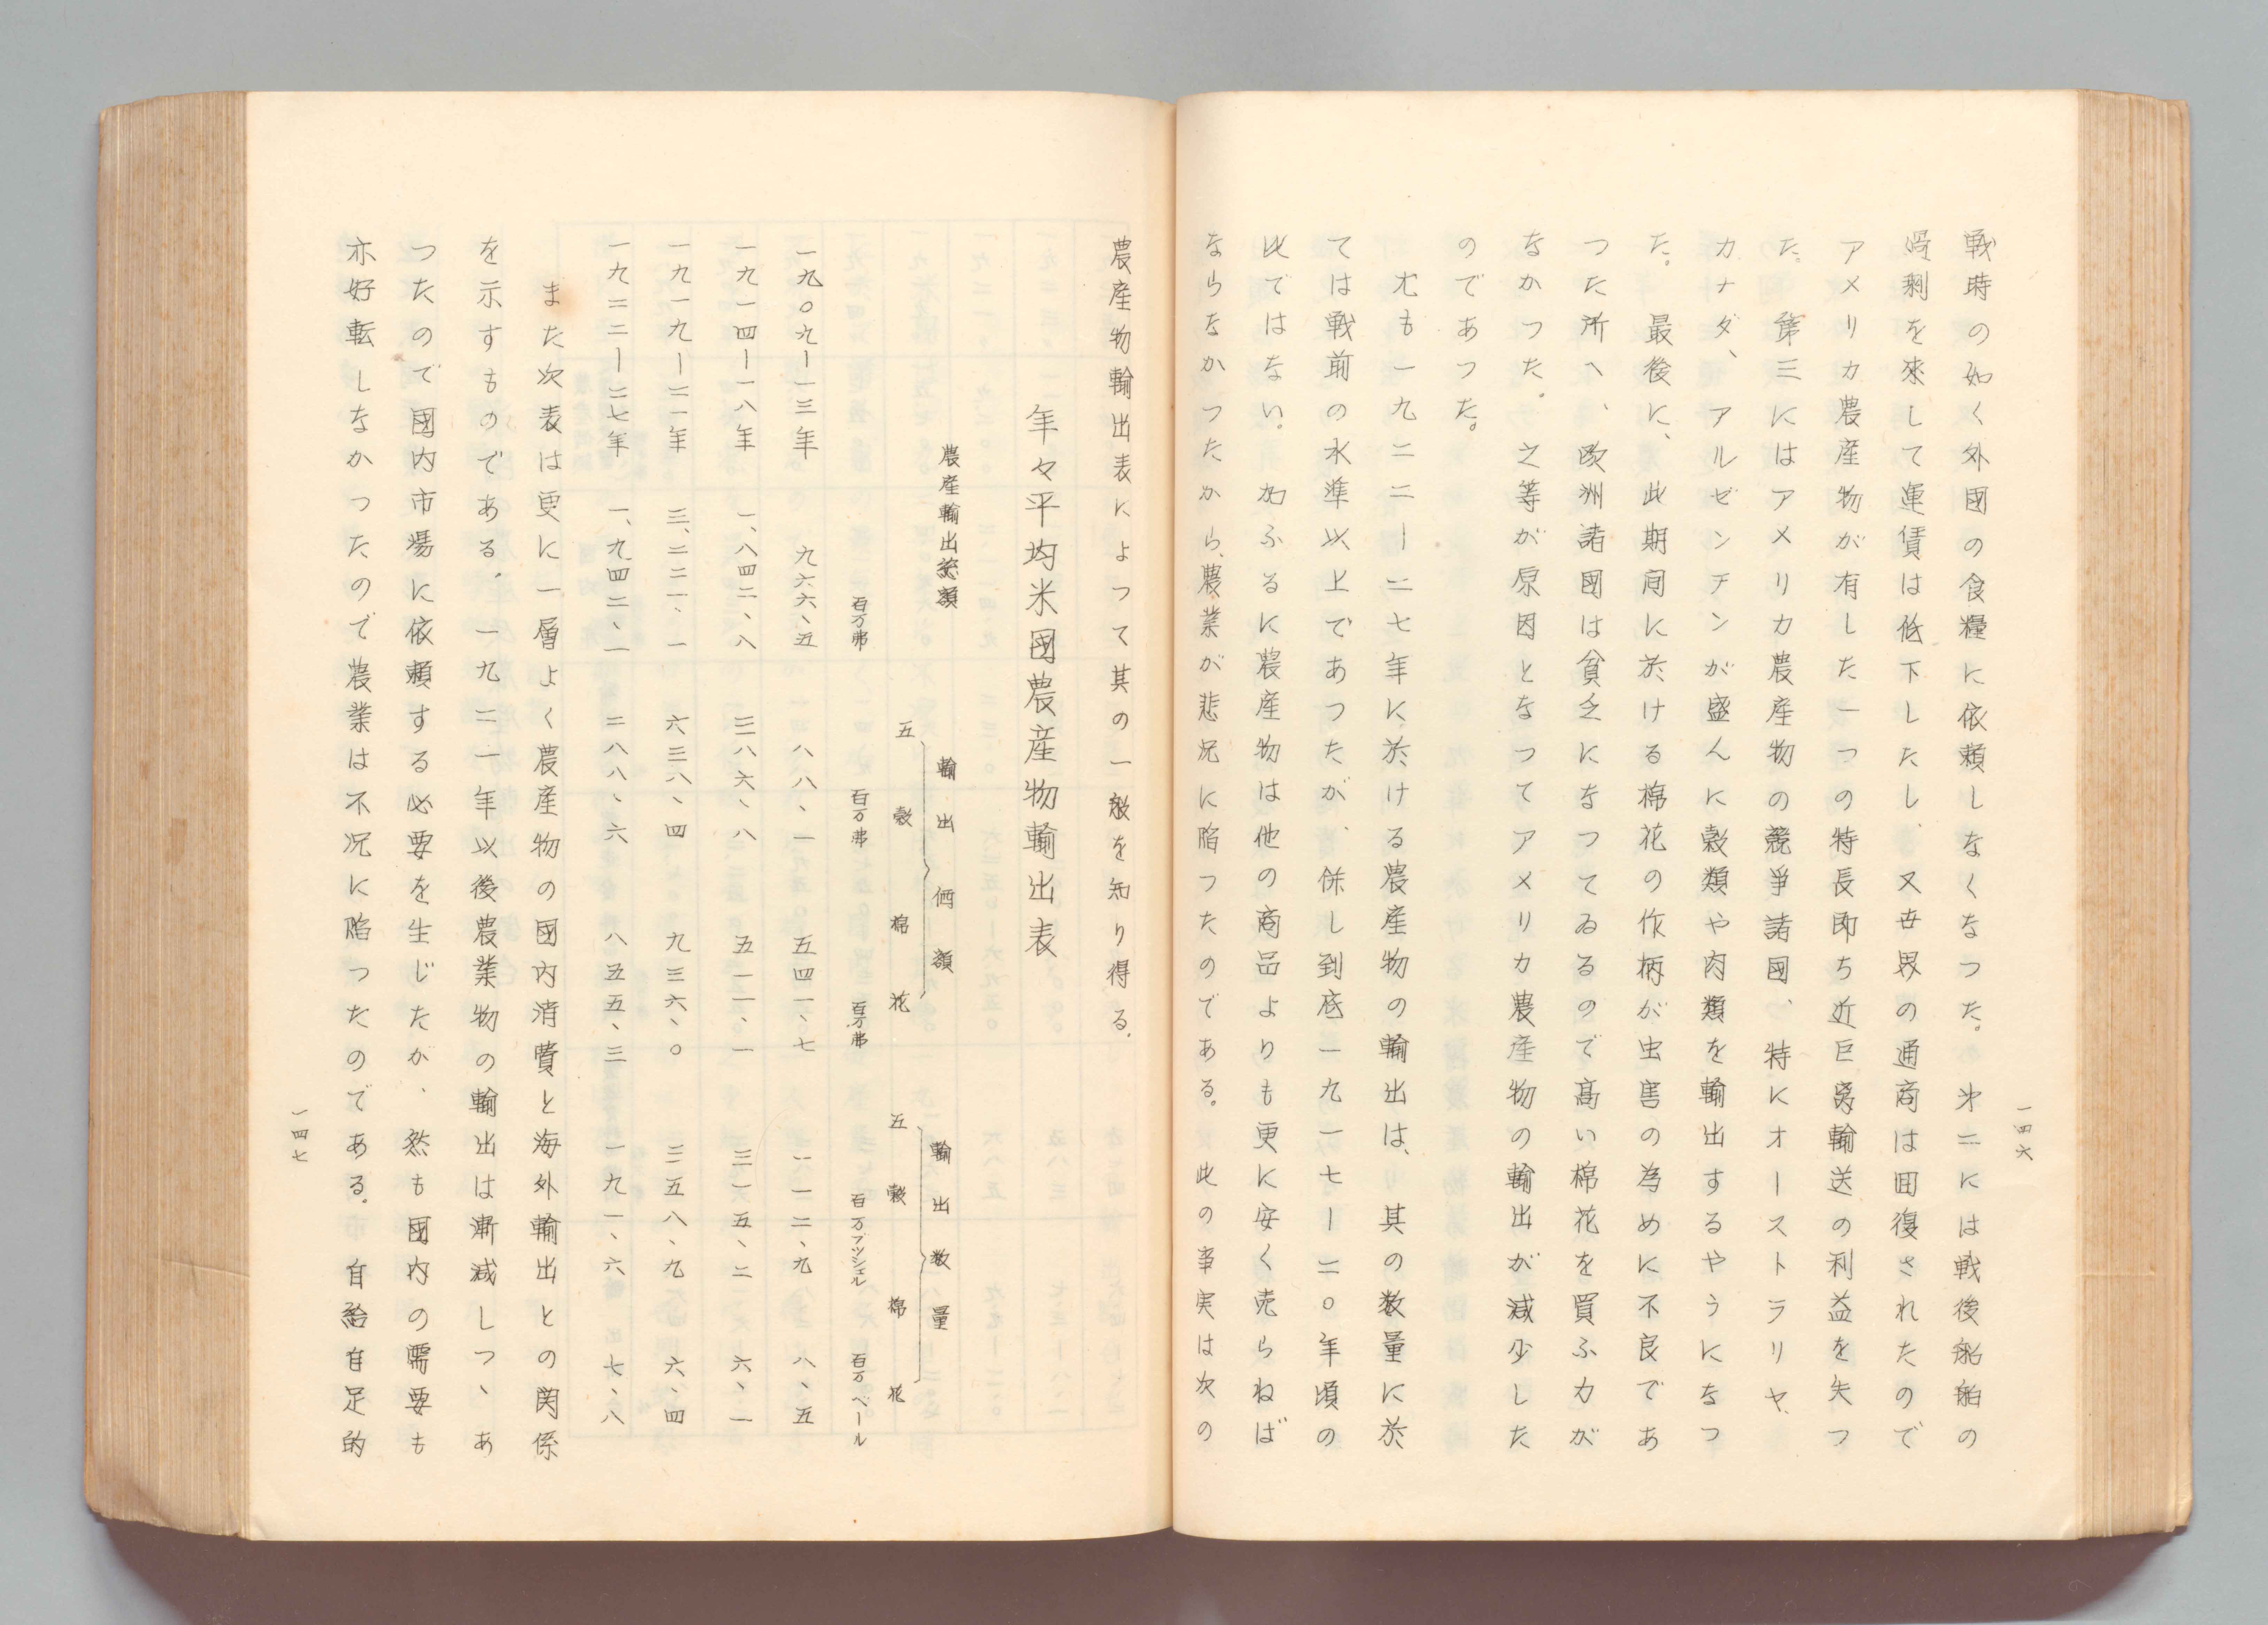 戦時の如く外國の食糧に依頼しなくなつた。次二には戦後船舶の
過剰を來して運賃は低下したし、又世界の通商は回復されたので
アメリカ農産物が有した一つの特長即ち近巨离輸送の利益を失つ
た。第三にはアメリカ農産物の競爭諸國、特にオーストラリヤ、
カナダ、アルゼンチンが盛んに穀類や肉類を輸出するやうになつ
た。最後に、此期间に於ける棉花の作柄が虫害の為めに不良であ
つた所へ、欧洲諸國は貧乏になつてゐるので高い棉花を買ふ力が
なかつた。之等が原因となつてアメリカ農産物の輸出が減少した
のであつた。
尤も一九二二ー二七年に於ける農産物の輸出は、其の数量に於
ては戦前の水準以上であつたが、併し到底一九一七ー二〇年頃の
比ではない。加ふるに農産物は他の商品よりも更に安く売らねば
ならなかつたから、農業が悲況に陥つたのである。此の事実は次の
一四六
農産物輸出表によつて其の一般を知り得る。
年々平均米國農産物輸出表
農産輸出総額 輸出価額 輸出数量
五穀 棉花 五穀 棉花
百万弗 百万弗 百万弗 百万ブツシエル 百万ベール
一九〇九ー一三年 九六六、五 八八、一 五四一、七 一一二、九 八、五
一九一四ー一八年 一、八四二、八 三八六、八 五一一、一 三一五、二 六、一
一九一九ー二一年 三、二二一、一 六三八、四 九三六、〇 三五八、九 六、四
一九二二ー二七年 一、九四二、一 二八八、六 八五五、三 一九一、六 七、八
また次表は更に一層よく農産物の國内消費と海外輸出との関係
を示すものである。一九二一年以後農業物の輸出は漸減しつゝあ
つたので國内市場に依頼する必要を生じたが、然も國内の需要も
亦好転しなかつたので農業は不況に陥つたのである。自給自足的
一四七